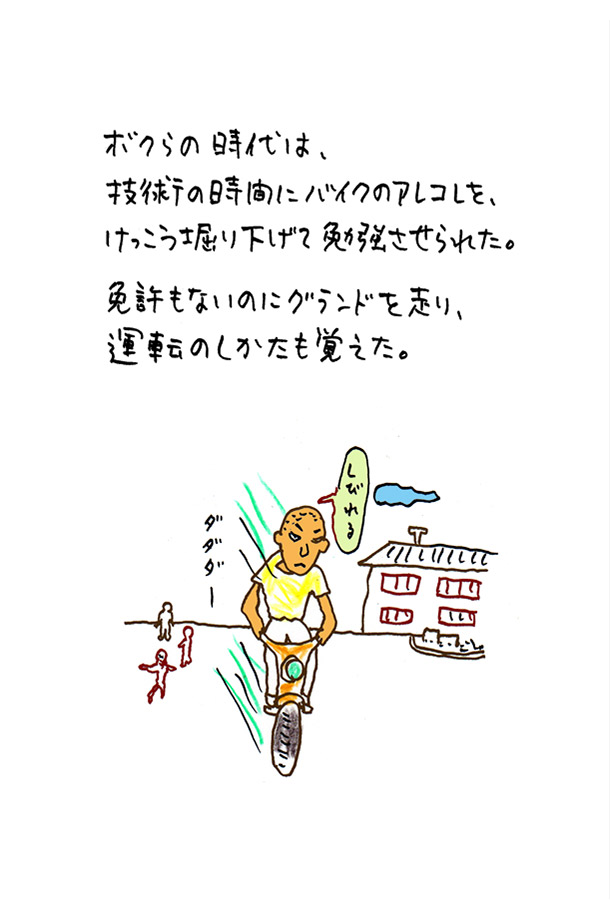 ボクらの時代は、
技術の時間にバイクのアレコレを、
けっこう堀り下げて勉強させられた。
免許もないのにグランドを走り、
運転のしかたも覚えた。
しびれる
ダダダー